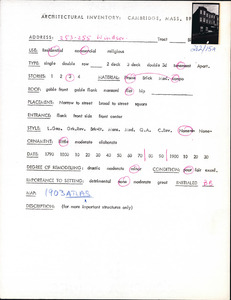 ARCHITECTURAL INVENTORY: CAMBRIDGE, MASS, 19
ADDRESS: 253-255 Tract
USE: Residential commercial religious
TYPE: single double row 2 deck 3 deck double 3d tenement apart.
STORIES: 1 2 3 4 MATERIAL: frame brick
ROOF: gable front gable flank mansard flat hip
PLACEMENT: Narrow to street broad to street square
ENTRANCE: flank front side front center
STYLE: Q.A. None
ORNAMENT: little moderate elaborate
DATE: 1790 1800 10 20 30 40 50 60 70 80 90 1900 10 20 30
DEGREE OF REMODELING: drastic moderate minor CONDITION: poor fair excel.
IMPORTANCE TO SETTING: detrimental none moderate great INITIALS
MAP 1903 ATLAS
DESCRIPTION: (for more important structures only)